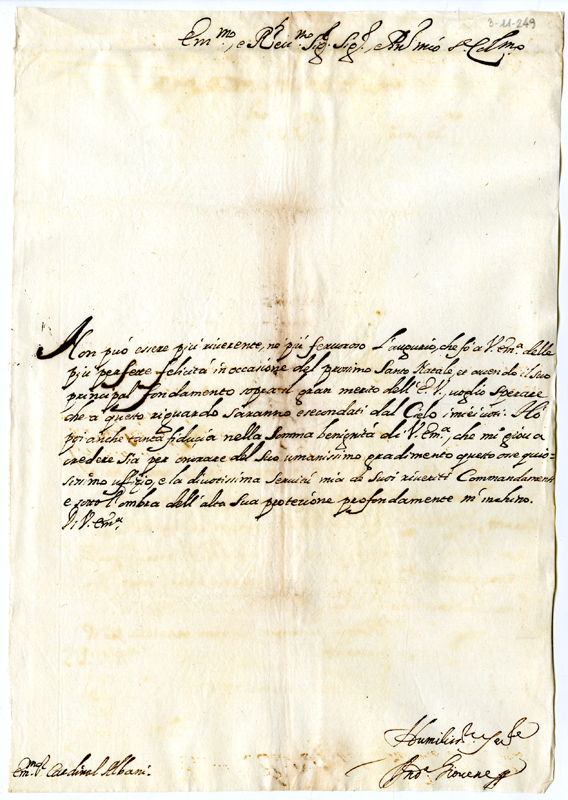 3-11-249
Em.mo, e Rev.mo Sig.r Sig.r, e Pad.ne mio Col.mo
Non può essere più riverente, ne più fervoroso l'augurio, che fò a V. Em.a delle
più perfette felicità in occasione del prossimo Santo Natale, et avendo il suo
principal fondamento sopra il gran merito dell'E.V. voglio sperare
che a questo riguardo saranno essecondati dal Cielo i miei voti. Hò
poi anche tanta fiducia nella somma benignità di V. Em.a, che mi giova
credere sia per onorare del suo umanissimo gradimento questo ossequio-
sissimo uffizio, e la divotissima servitù mia de suoi riveriti Commandamenti
e sotto l'ombra dell'alta sua protezione profondamente m'inchino.
Di V. Em.a
Humiliss.mo
Giovene
Em.mo S.r Cardinal Albani.